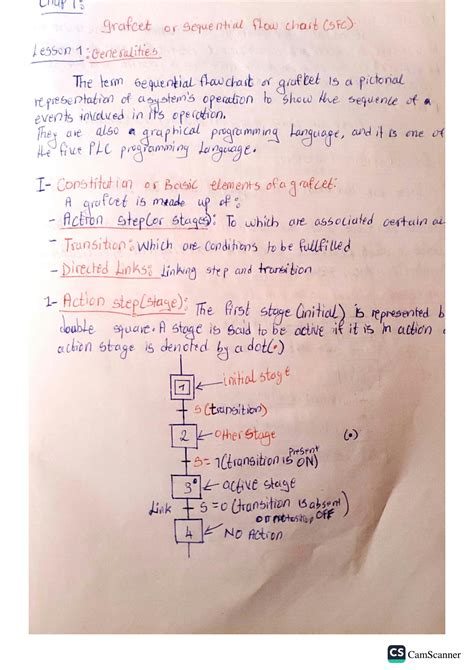 Chap 1:
Grafcet or Sequential Flow chart (SFC)
Lesson 1: Generalities
The term sequential flowchart or grafcet is a pictorial
representation of a system's operation to show the sequence of a
events involved in its operation.
They are also a graphical programming language, and it is one of
the five PLC programming language.
I- Constitution or Basic elements of a grafcet:
A grafcet is made up of:
- Action step (or stages): To which are associated certain ac
- Transition: which are conditions to be fullfilled
- Directed Links: Linking step and transition
1- Action step (stage): The first stage (initial) is represented b
double square. A stage is said to be active if it is in action
action stage is denoted by a dot (•)
1 initial stage
S (transition)
2 other stage (•)
S = 1 (transition is present ON)
3• active stage
Link S = 0 (transition is absent
OFF
4 No Action
CS CamScanner